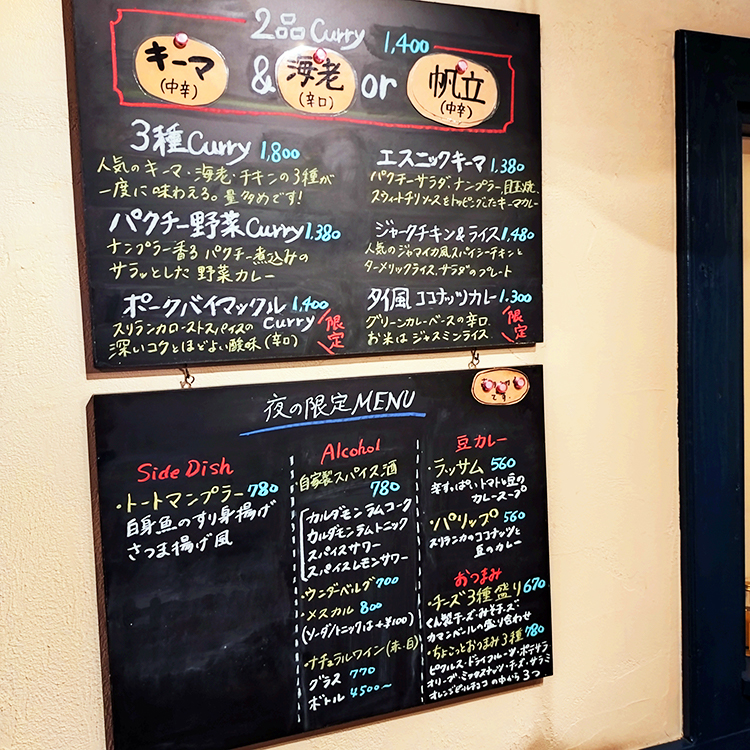 2品 Curry 1,400
キーマ
(中辛)
&
海老
(辛口)
or
帆立
(中辛)
3種Curry 1,800
人気のキーマ・海老・チキンの3種が
一度に味わえる。量多めです!
パクチー野菜Curry 1,380
ナンプラー香るパクチー煮込みの
サラッとした野菜カレー
ポークバイマックル 1,400
スリランカローストスパイスのCurry
深いコクとほどよい酸味(辛口)
限定
エスニックキーマ 1,380
パクチーサラダ、ナンプラー、目玉焼、
スウィートチリソースをトッピングしたキーマカレー
ジャークチキン&ライス 1,480
人気のジャマイカ風スパイシーチキンと
ターメリックライス、サラダのプレート
タイ風ココナッツカレー 1,300
グリーンカレーベースの辛口、
お米はジャスミンライス
限定
夜の限定MENU
です
Side Dish
・トートマンプラー 780
白身魚のすり身揚げ
さつま揚げ風
Alcohol
・自家製スパイス酒
780
カルダモンラムコーク
カルダモンラムトニック
スパイスサワー
スパイスレモンサワー
・ウンダーベルグ 700
・メスカル 800
(ソーダ/トニックは+¥100)
・ナチュラルワイン(赤・白)
グラス 770
ボトル 4500〜
豆カレー
・ラッサム 560
辛すっぱい、トマトと豆の
カレースープ
・パリップ 560
スリランカのココナッツと
豆のカレー
おつまみ
・チーズ3種盛り 670
くん製チーズ・みそチーズ・
カマンベールの盛り合わせ
・ちょこっとおつまみ3種 780
ピクルス・ドライフルーツ・ポテサラ
オリーブ・ミックスナッツ・チーズ・サラミ
オレンジピールチョコの中から3つ